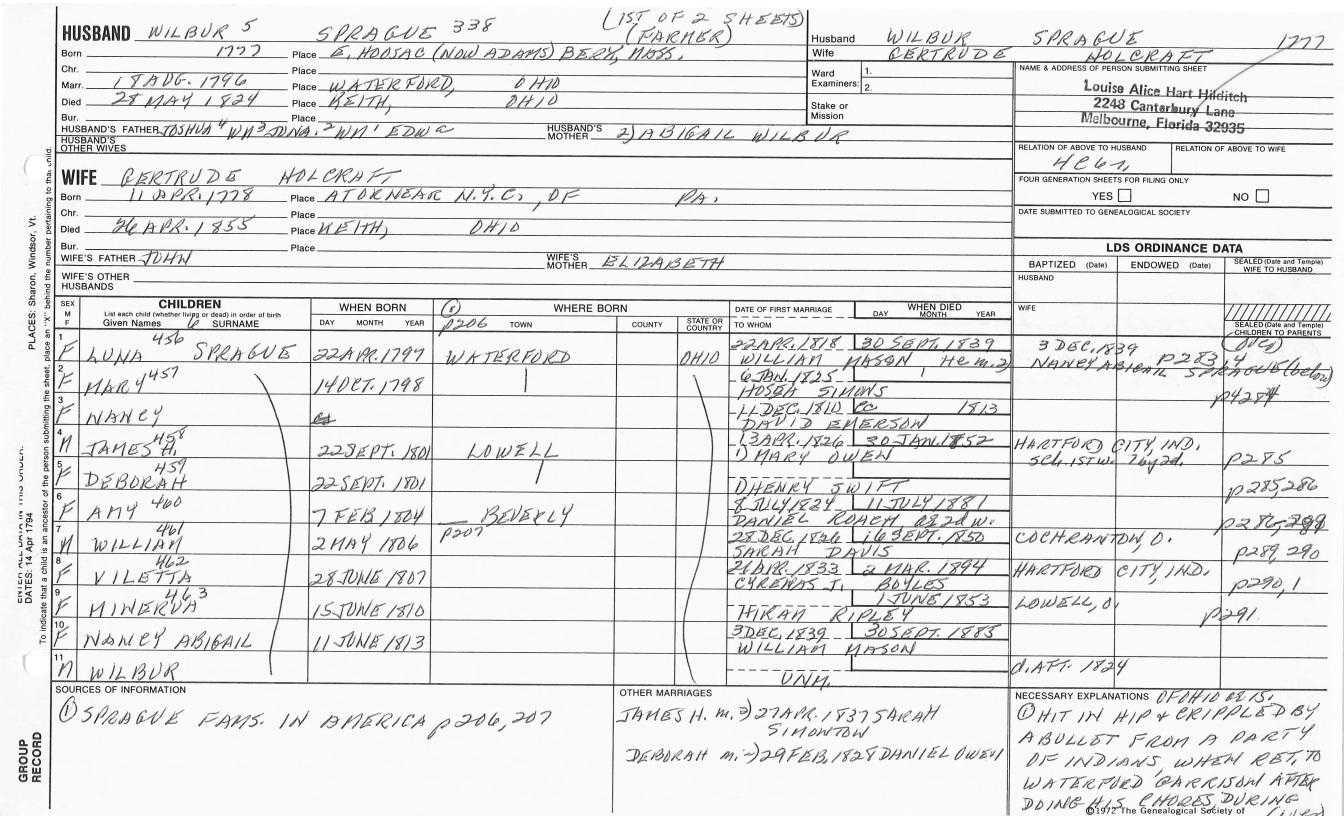 (1ST OF 2 SHEETS)
HUSBAND WILBUR 5 SPRAGUE 338 (FARMER)
Born 1777 Place E. HOOSAC (NOW ADAMS) BERK, MASS.
Chr. Place
Marr. 18 AUG. 1796 Place WATERFORD, OHIO
Died 28 MAY 1824 Place KEITH, OHIO
Bur. Place
HUSBAND'S FATHER JOSHUA 4 WM 3 JONA. 2 WM 1 EDW HUSBAND'S MOTHER 2) ABIGAIL WILBUR
HUSBAND'S OTHER WIVES
Husband WILBUR SPRAGUE 1777
Wife GERTRUDE HOLCRAFT
Ward Examiners: 1.
2.
Stake or Mission
NAME & ADDRESS OF PERSON SUBMITTING SHEET
Louise Alice Hart Hilditch
2248 Canterbury Lane
Melbourne, Florida 32935
RELATION OF ABOVE TO HUSBAND RELATION OF ABOVE TO WIFE
FOUR GENERATION SHEETS FOR FILING ONLY
YES NO
DATE SUBMITTED TO GENEALOGICAL SOCIETY
WIFE GERTRUDE HOLCRAFT
Born 11 APR. 1778 Place AT OR NEAR N.Y.C., OF PA.
Chr. Place
Died 26 APR. 1855 Place KEITH, OHIO
Bur. Place
WIFE'S FATHER JOHN WIFE'S MOTHER ELIZABETH
WIFE'S OTHER HUSBANDS
LDS ORDINANCE DATA
BAPTIZED (Date) ENDOWED (Date) SEALED (Date and Temple) WIFE TO HUSBAND
HUSBAND
WIFE
SEALED (Date and Temple) CHILDREN TO PARENTS
SEX M F CHILDREN WHEN BORN WHERE BORN DATE OF FIRST MARRIAGE WHEN DIED
List each child (whether living or dead) in order of birth
Given Names 6 SURNAME DAY MONTH YEAR p206 TOWN COUNTY STATE OR COUNTRY TO WHOM DAY MONTH YEAR
1 F LUNA 456 SPRAGUE 22 APR. 1797 WATERFORD OHIO 22 APR. 1818 30 SEPT. 1839 3 DEC, 1839
WILLIAM MASON He m. 2) NANCY ABIGAIL SPRAGUE (below) p283,4
2 F MARY 457 14 OCT. 1798 6 JAN. 1825
HOSEA SIMONS p284
3 F NANCY 11 DEC. 1810 1813
DAVID EMERSON
4 M JAMES H. 458 22 SEPT. 1801 LOWELL 13 APR. 1826 30 JAN. 1852 HARTFORD CITY, IND.
1) MARY OWEN 5ch. 1ST w. 7 by 2d. p285
5 F DEBORAH 459 22 SEPT. 1801
1) HENRY SWIFT p285,286
6 F AMY 460 7 FEB 1804 BEVERLY 8 JULY 1824 11 JULY 1881
DANIEL ROACH, as 2d w.
7 M WILLIAM 461 2 MAY 1806 p207 28 DEC, 1826 16 SEPT. 1850 COCHRANTON, O.
SARAH DAVIS p289, 290
8 F VILETTA 462 28 JUNE 1807 21 APR. 1833 2 MAR. 1894 HARTFORD CITY, IND.
CYRENAS J. BOYLES p290,1
9 F MINERVA 463 15 JUNE 1810 1 JUNE 1853 LOWELL, O.
HIRAM RIPLEY p291
10 F NANCY ABIGAIL 11 JUNE 1813 3 DEC, 1839 30 SEPT. 1883
WILLIAM MASON
11 M WILBUR d. AFT. 1824
UNM.
SOURCES OF INFORMATION
(1) SPRAGUE FAMS. IN AMERICA p206, 207
OTHER MARRIAGES
JAMES H. m. 2) 27 APR. 1837 SARAH
SIMONTON
DEBORAH m. 2) 29 FEB, 1828 DANIEL OWEN
NECESSARY EXPLANATIONS OF OHIO
(1) HIT IN HIP & CRIPPLED BY
A BULLET FROM A PARTY
OF INDIANS, WHEN RET. TO
WATERFORD GARRISON AFTER
DOING HIS CHORES, DURING
©1972 The Genealogical Society of
GROUP RECORD
ENTER ALL DATA IN THIS ORDER:
DATES: 14 Apr 1794
PLACES: Sharon, Windsor, Vt.
To indicate that a child is an ancestor of the person submitting the sheet, place an "X" behind the number pertaining to that child.